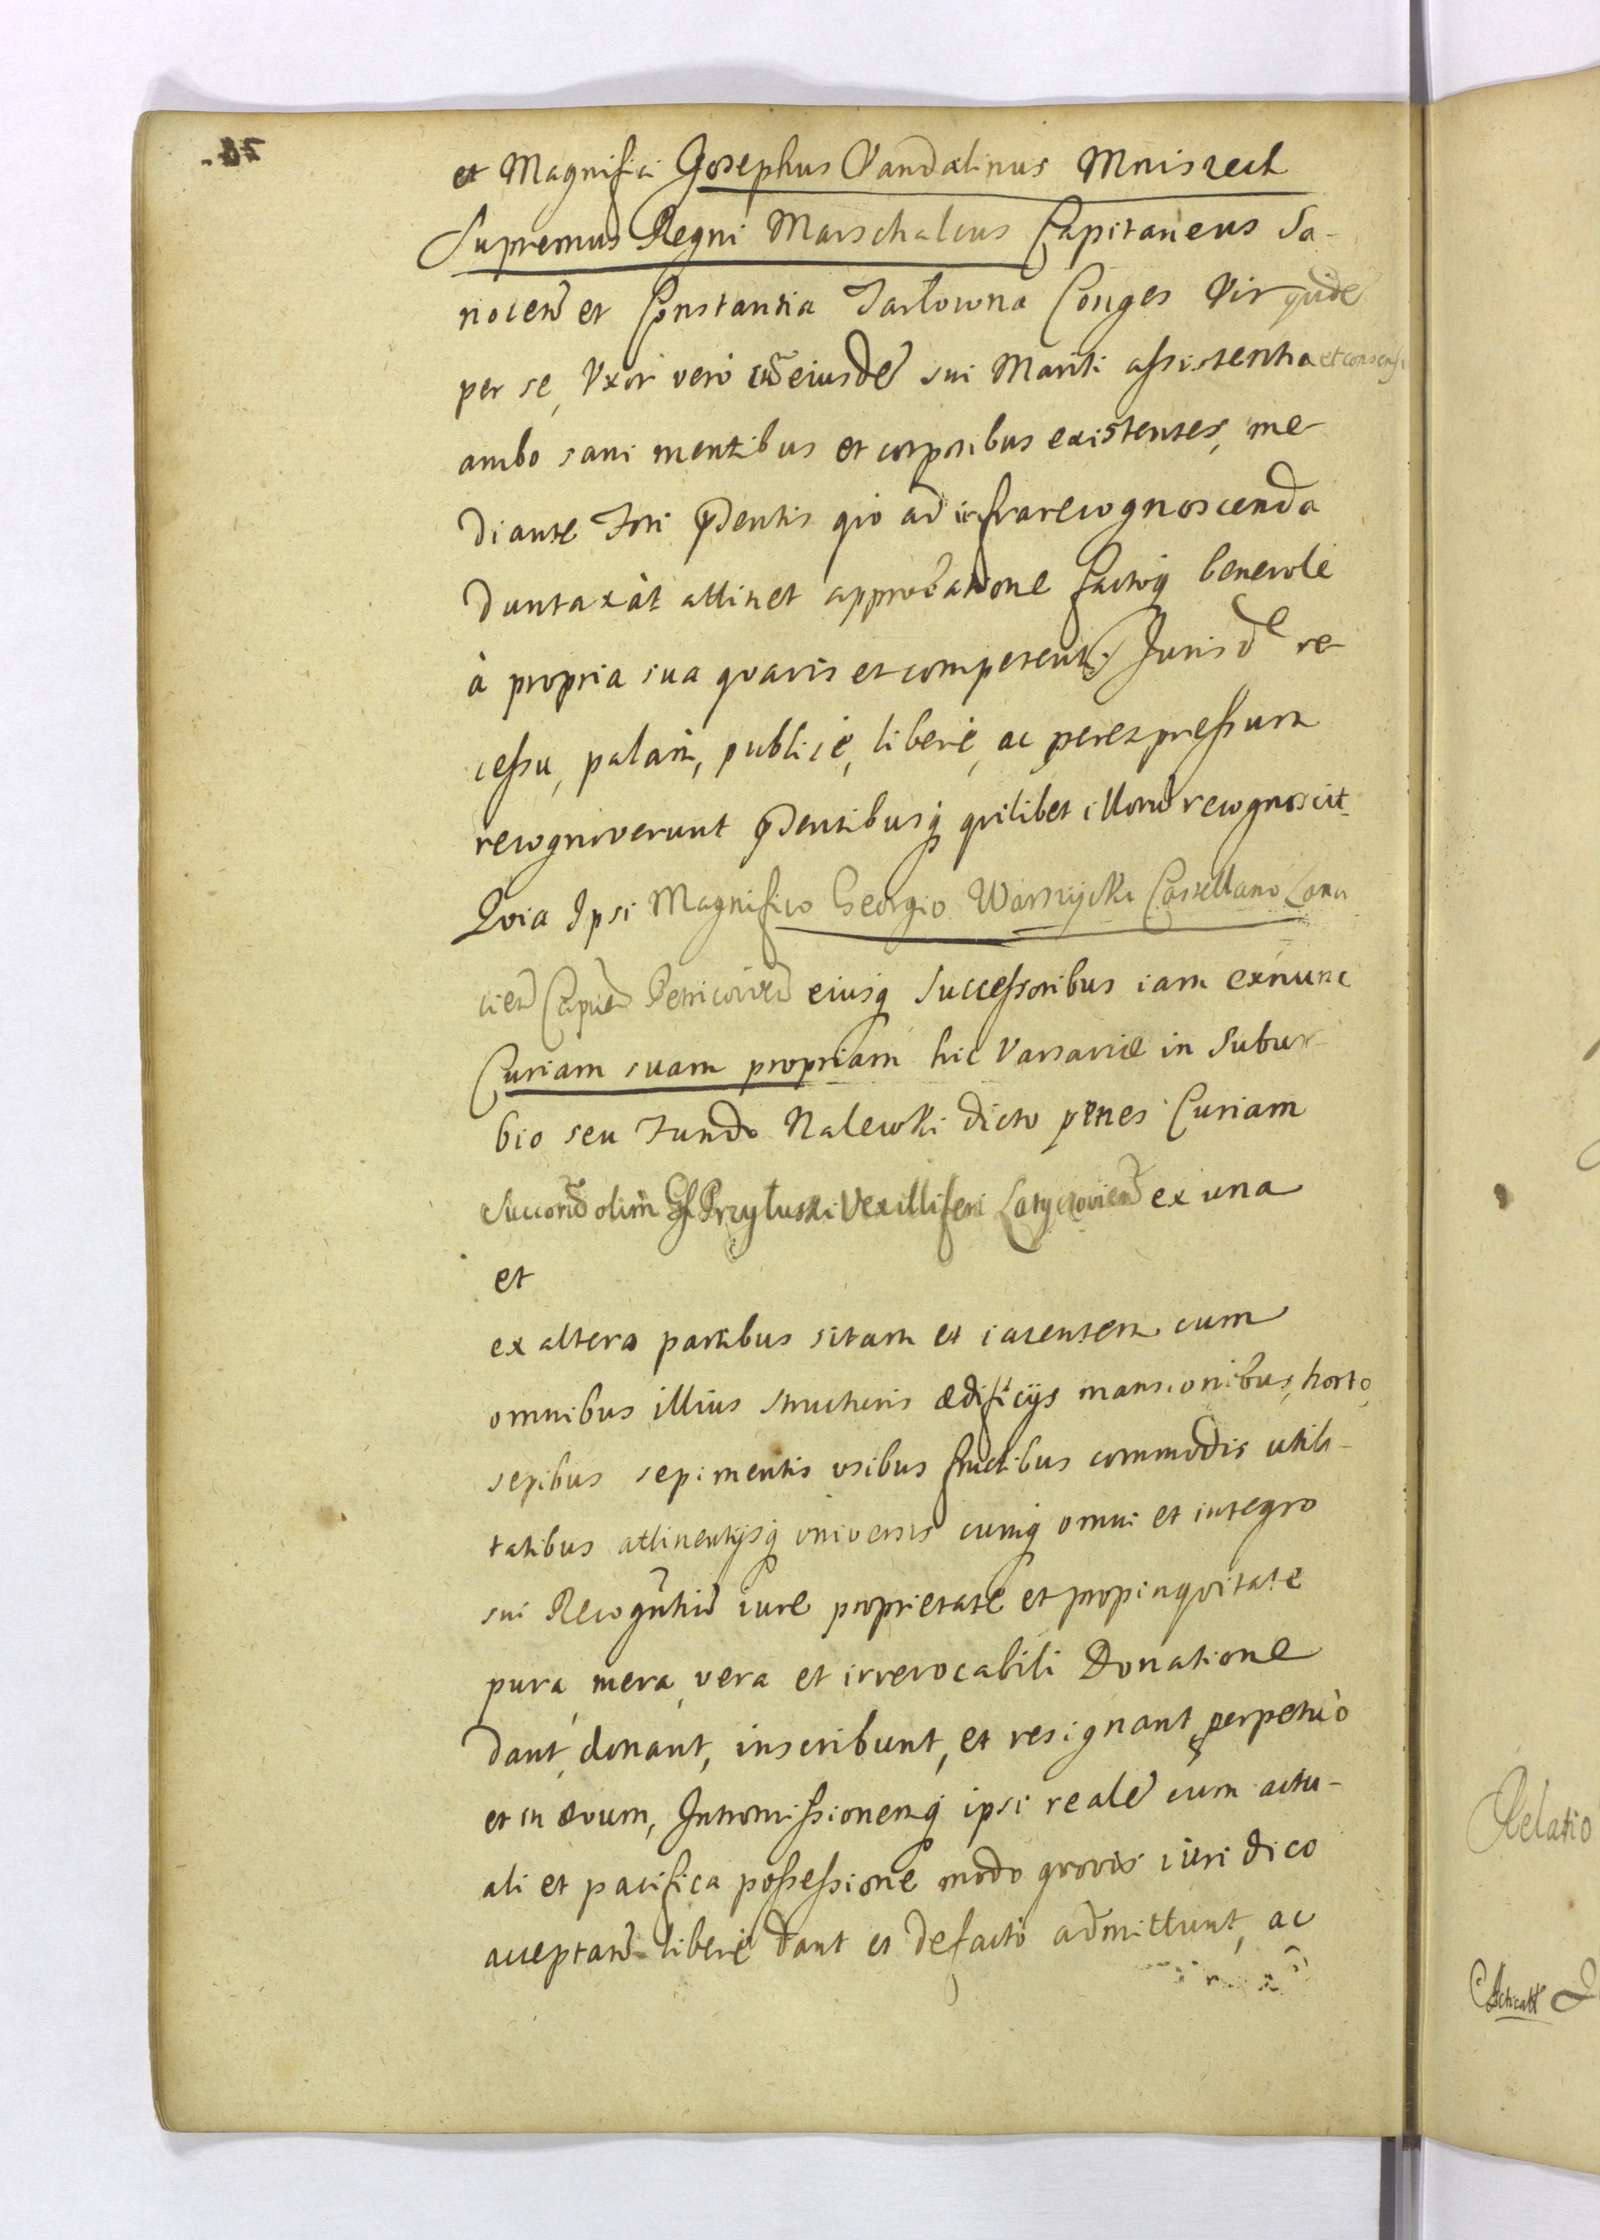 et Magnifici Josephus Vandalinus Mniszech
Supremus Regni Marschalcus Capitaneus Sa-
nocen̄ et Constantia Tarłowna Conges Vir quidē
per se, Uxor verò cū eiusdē sui Mariti assistentia et consensu
ambo sani mentibus et corporibus existentes, me-
diante Fori p̄dentis q̄o ad infrarecognoscenda
duntaxàt attinet approbatione factoq̨ benevole
à propria sua quavis et competenti Jurisde re-
cessu, palam, publicè, liberè, ac per expressum
recognoverunt p̄dentibusq̨ quilibet illorū recognoscit
Quia Ipsi Magnifico Georgio Warszycki Castellano Lanci
cien̄ Capneo Petricovien̄ eiusq̨ Successoribus iam exnunc
Curiam suam propriam hic Varsaviæ in Subur-
bio seu Fundo Nalewki dicto penes Curiam
Succorū olim Gsi Przyłuski Vexilliferi Latyczovien̄ ex una
et
ex altera partibus sitam et iacentem cum
omnibus illius structuris ædificijs mansionibus, horto
sepibus sepimentis usibus fructibus commodis utili-
tatibus attinentijsq̨ universis cumq̨ omni et integro
sui Recogn̄tiū iure proprietate et propinquitate
pura, mera, vera et irrevocabili Donatione
dant, donant, inscribunt, et resignant perpetuò
et in ævum, Intromissionemq̨ ipsi realē cum actu-
ali et pacifica possessione modo quovis iuridico
acceptan̄ liberè dant et defacto admittunt, ac
Relatio